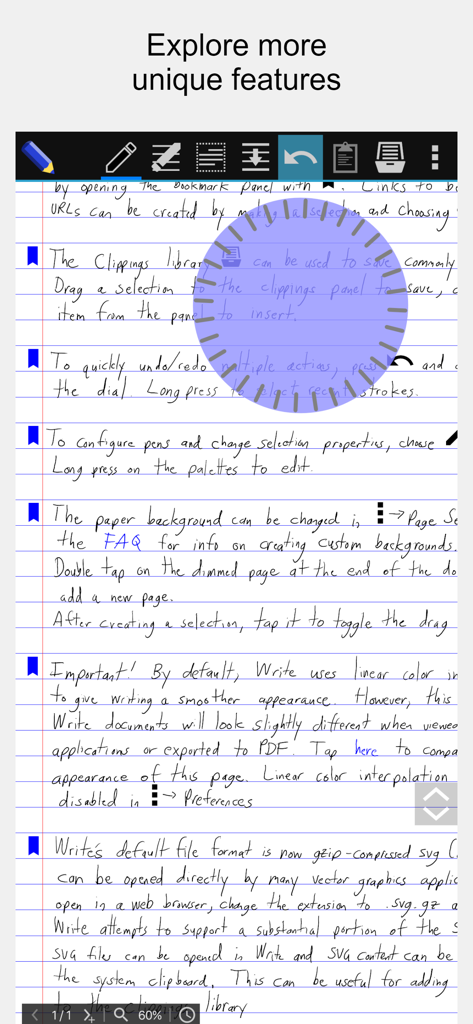 Explore more
unique features
by opening the bookmark panel with . Links to b
URLs can be created by making a selection and choosing
The Clippings library can be used to save commonly
Drag a selection to the clippings panel to save,
item from the panel to insert.
To quickly undo/redo multiple actions, press and
the dial. Long press to select recent strokes.
To configure pens and change selection properties, choose
Long press on the palettes to edit.
The paper background can be changed in → Page Se
the FAQ for info on creating custom backgrounds.
Double tap on the dimmed page at the end of the do
add a new page.
After creating a selection, tap it to toggle the drag
Important! By default, Write uses linear color in
to give writing a smoother appearance. However, this
Write documents will look slightly different when viewed
applications or exported to PDF. Tap here to compa
appearance of this page. Linear color interpolation
disabled in → Preferences
Write's default file format is now gzip-compressed svg (.
can be opened directly by many vector graphics applic
open in a web browser, change the extension to .svg.gz a
Write attempts to support a substantial portion of the S
SVG files can be opened in Write and SVG content can be
the system clipboard. This can be useful for adding
to the clippings library
1/1 60%